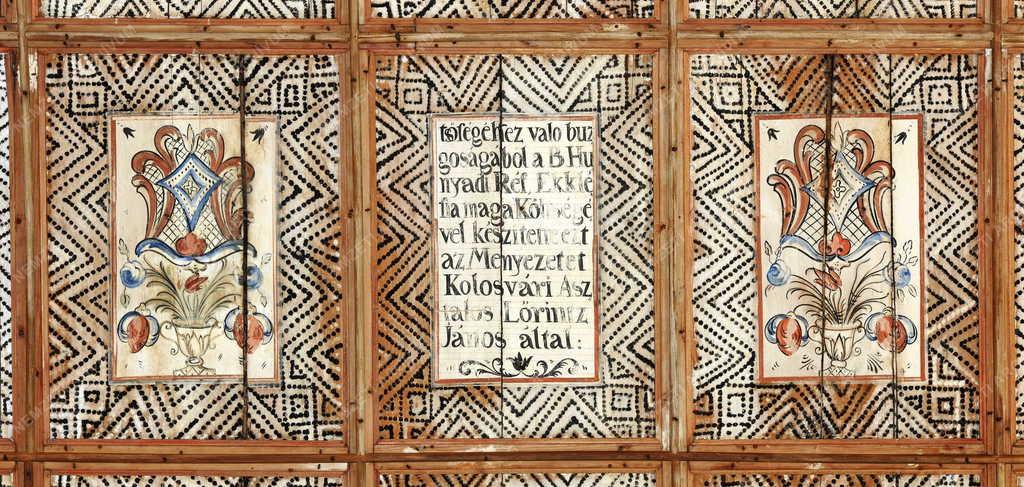 töségéhez valo buz
goságából a B Hu
nyadi Réf. Ekklé
sia maga Költségé
vel készíttette ezt
az Menyezetet
Kolosvári Asz
talos Lőrintz
János által: